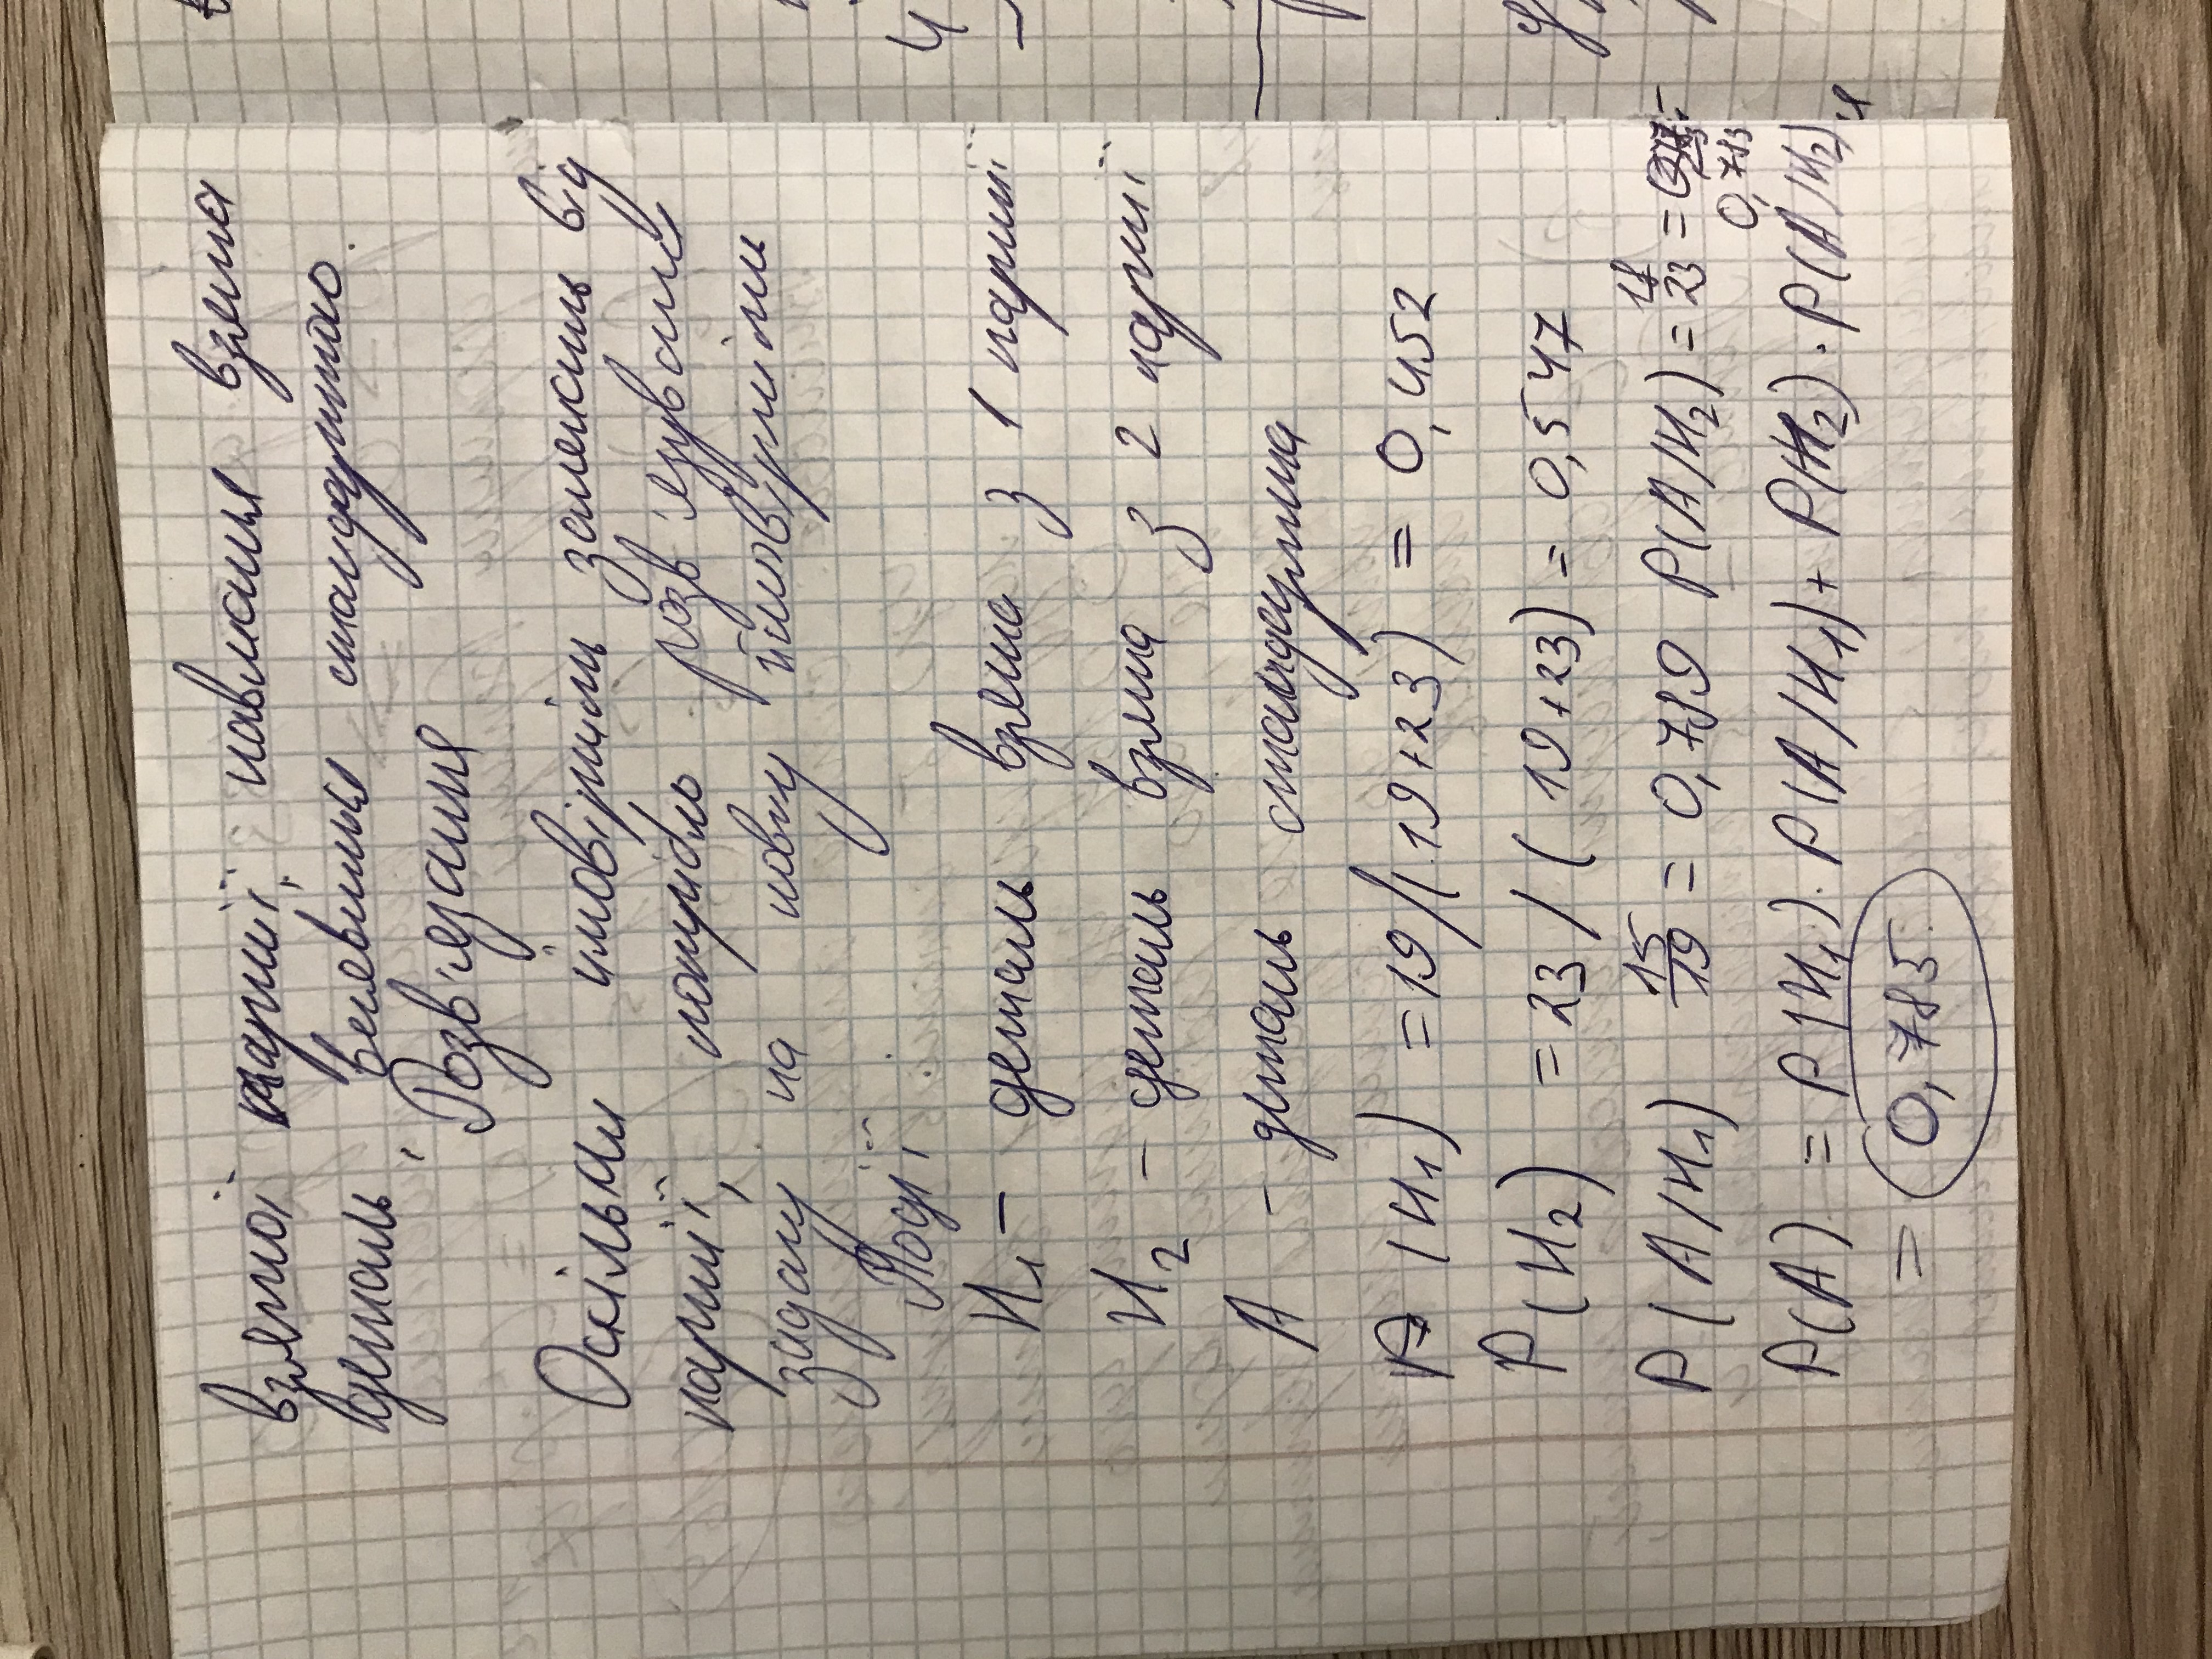 взятої партії, навмання взята
деталь, виявиться стандартною.
Розв'язання
Оскільки ймовірність залежить від
партії, потрібно розв'язувати
задачу на повну ймовірність
Події:
H₁ – деталь взята з 1 партії
H₂ – деталь взята з 2 партії
A – деталь стандартна
P(H₁) = 19/(19+23) = 0,452
P(H₂) = 23/(19+23) = 0,547
P(A/H₁) 15/19 = 0,789 P(A/H₂) = 18/23 =
0,783
P(A) = P(H₁)·P(A/H₁)+P(H₂)·P(A/H₂)
= 0,785